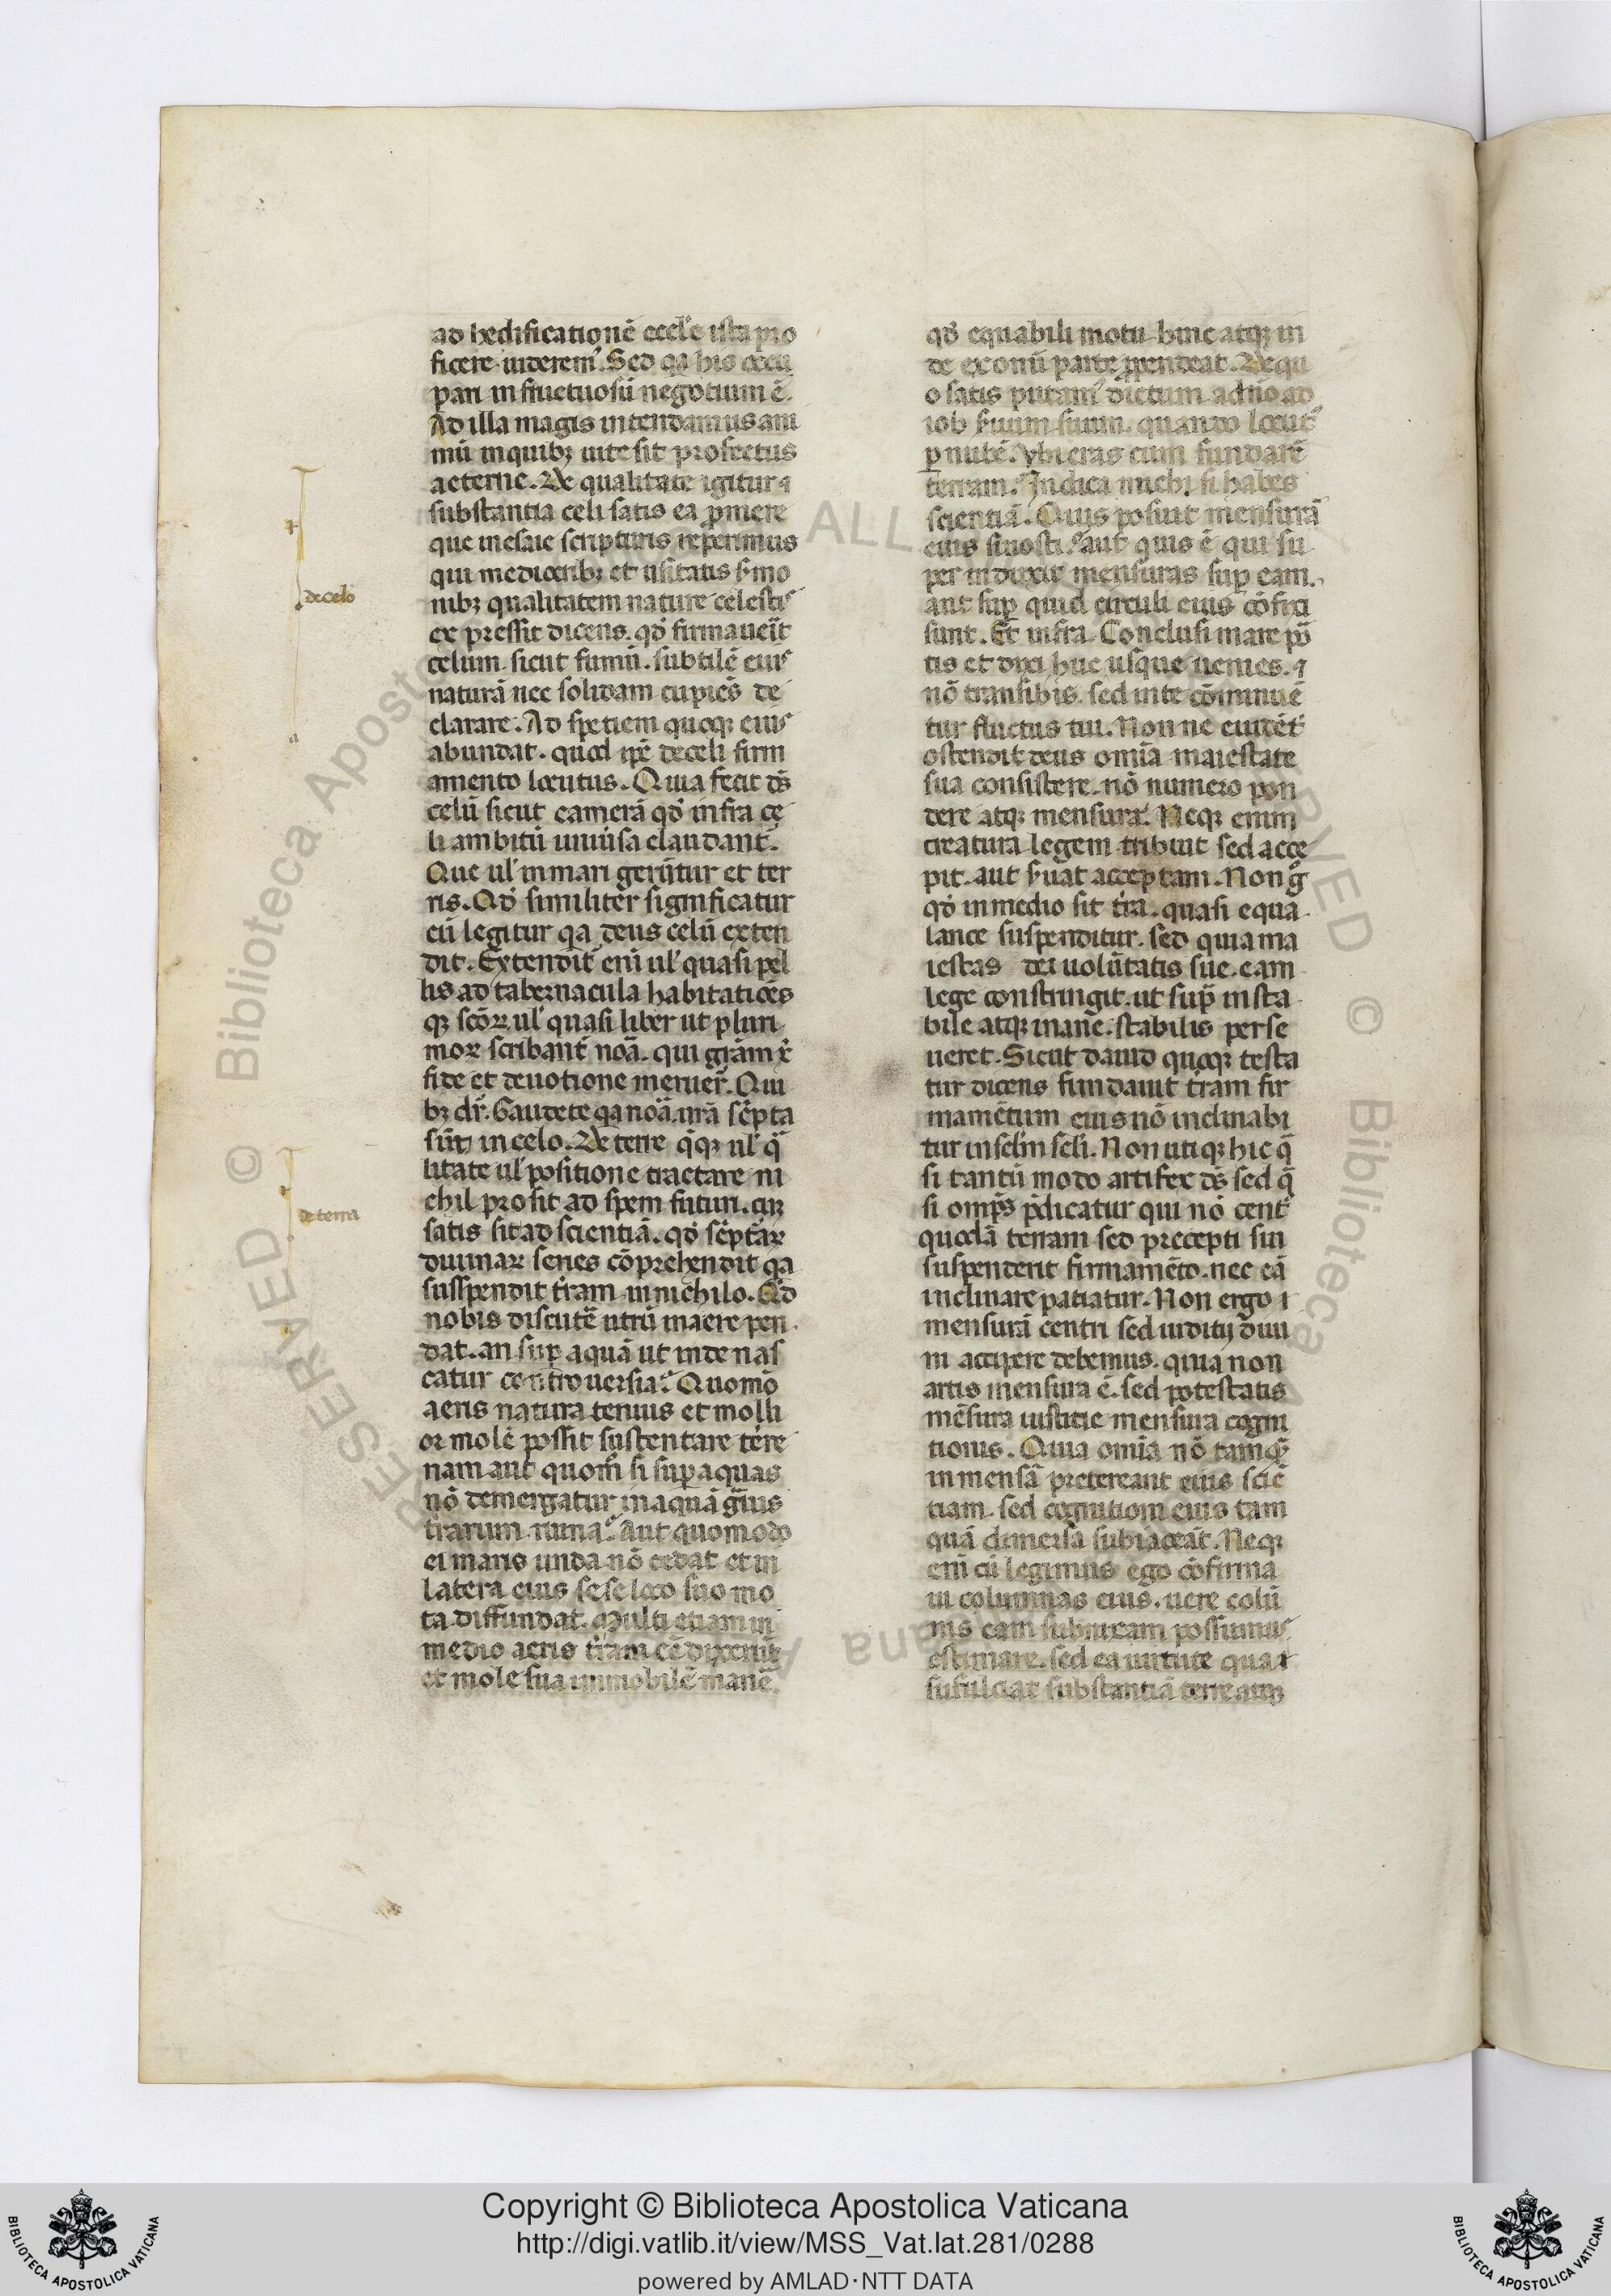 ad hedificationē eccl'e ista pro
ficere uiderem᷒. Sed qa his occu
pari infructuosū negotium ē.
Ad illa magis intendamus ani
mū in quibꝫ uite sit profectus
aeterne. De qualitate igitur ⁊
substantia celi satis ea ꝓmere
que in esaie scripturis reperimus
qui mediocribꝫ et usitatis s'mo
nibꝫ qualitatem nature celesti᷒
expressit dicens. qď firmauerit
celum sicut fumū. subtilē eiu᷒
naturā nec solidam cupiēs de
clarare. Ad spetiem quoqꝫ eiu᷒
abundat. quod ip̄e de celi firm
amento locutus. Quia fecit ds̄
celū sicut camerā qď infra ce
li ambitū uniu'sa claudant᷒.
Que ul' in mari gerūtur et ter
ris. Qď similiter significatur
cū legitur qa deus celū exten
dit. Extendit eni ul' quasi pel
lis ad tabernacula habitatiōes
qꝫ scōꝝ. ul' quasi liber ut pluri
moꝝ scribant᷒ noā. qui grām x̄
fide et deuotione meruer̄. Qui
bꝫ dr̄. Gaudete qa noā ur̄a sc̄pta
sūt in celo. De terre qꝫ ul' q̄
litate ul' positione tractare ni
chil prosit ad spem futuri. cū
satis sit ad scientiā. qď sc̄ptaꝝ
diuinaꝝ series cōprehendit qa
susspendit t'ram in nichilo. Qď
nobis discutē utrū in aere pen
dat. an suꝑ aquā ut inde nas
catur controuersia. Quomō
aeris natura tenuis et molli
or molē possit sustentare terre
nam aut quom̄ si suꝑ aquas
nō demergatur in aquā g̃uis
t'rarum ruina. Aut quomodo
ei maris unda nō cedat et in
latera eius sese loco suo mo
ta diffundat. Multi etiam in
medio aeris t'ram eē dixerūt
et mole sua immobilē manē᷒
de celo
a
de terra
qď equabili motu hinc atqꝫ in
de ex omī parte ꝓpendeat. De qu
o satis putam᷒ dictum a dn̄o ad
iob s'uum suum. quando locut᷒
ꝑ nubē. Vbi eras cum fundarē
terram. Indica michi si habes
scientiā. Quis posuit mensurā
eius si nosti. aut quis ē qui su
per induxit mensuras suꝑ eam.
aut suꝑ quid circuli eius cōfixi
sunt. Et infra. Conclusi mare por
tis et dixi huc usque uenies. ⁊
nō transibis. sed in te cōminuē
tur fluctus tui. Non ne euidēt᷒
ostendit deus omīa maiestate
sua consistere. nō numero pon
dere atqꝫ mensura. Neqꝫ enim
creatura legem tribuit sed acce
pit. aut s'uat acceptam. Non g̊
qď in medio sit t'ra. quasi equa
lance suspenditur. sed quia ma
iestas dei uolūtatis sue eam
lege constringit. ut suꝑ insta
bile atqꝫ inane. stabilis perse
ueret. Sicut dauid quoqꝫ testa
tur dicens fundauit t'ram fir
mamētum eius nō inclinabi
tur in sclm̄ scli. Non utiqꝫ hic q̄
si tantū modo artifex ds̄ sed q̄
si omp̄s p̄dicatur qui nō cent᷒
quodā terram sed precepti sui
suspenderit firmamēto. nec eā
inclinare patiatur. Non ergo
mensurā centri sed iuditij diui
ni accipere debemus. quia non
artis mensura ē. sed potestatis
mēsura iustitie mensura cogni
tionis. Quia omīa nō tamq̄
in mensā pretereant eius sciē
tiam. sed cognitioni eius tam
quā dimensa subiaceāt. Neqꝫ
eni cū legimus ego cōfirma
ui columnas eius. uere colū
nis eam subnixam possumu᷒
estimare. sed ea uirtute qua
sufulciat substantiā terre atqꝫ
Copyright © Biblioteca Apostolica Vaticana
http://digi.vatlib.it/view/MSS_Vat.lat.281/0288
powered by AMLAD·NTT DATA